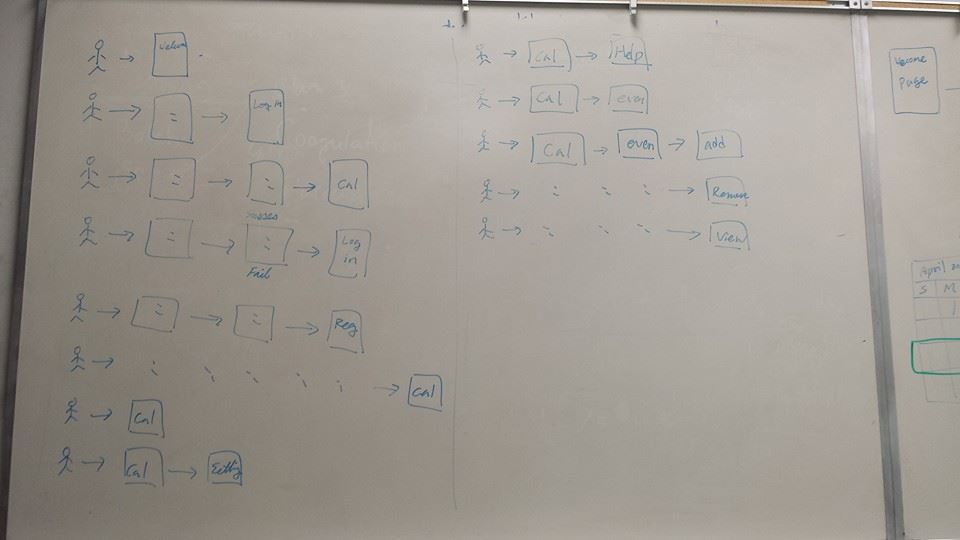 Log in
Cal
Success
Log
in
Fail
Reg
Cal
Cal
Cal
Cal Help
Cal even
Cal even add
Remove
View
Welcome
Page
April
S M